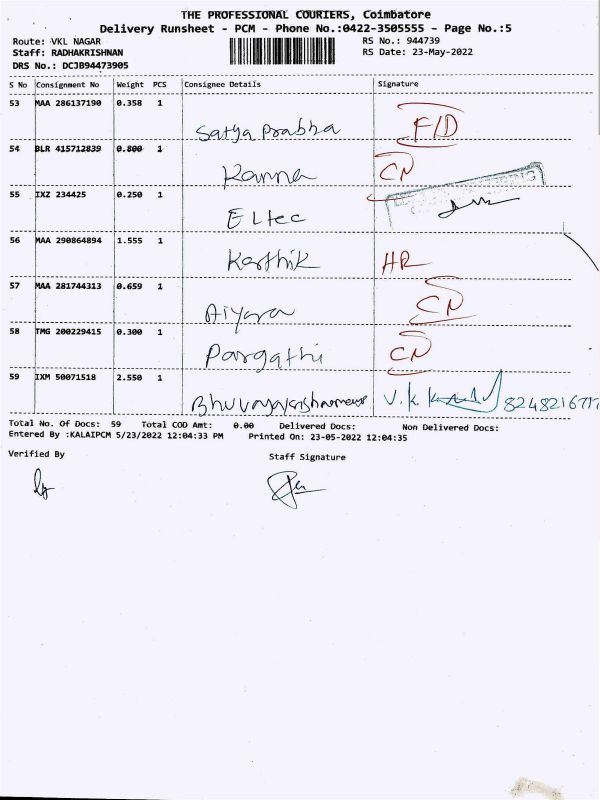 THE PROFESSIONAL COURIERS, Coimbatore
Delivery Runsheet - PCM - Phone No.:0422-3505555 - Page No.:5
Route: VKL NAGAR
RS No.: 944739
Staff: RADHAKRISHNAN
RS Date: 23-May-2022
DRS No.: DCJB94473905
S No Consignment No Weight PCS Consignee Details Signature
53 MAA 286137190 0.358 1
Satya Prabha F/D
54 BLR 415712839 0.800 1
Kanna CN
55 IXZ 234425 0.250 1
Eltec
56 MAA 290864894 1.555 1
Karthik HR
57 MAA 281744313 0.659 1
Aiyara CN
58 TMG 200229415 0.300 1
Pargathi CN
59 IXM 50071518 2.550 1
V.K
Total No. Of Docs: 59 Total COD Amt: 0.00 Delivered Docs: Non Delivered Docs:
Entered By :KALAIPCM 5/23/2022 12:04:33 PM Printed On: 23-05-2022 12:04:35
Verified By
Staff Signature